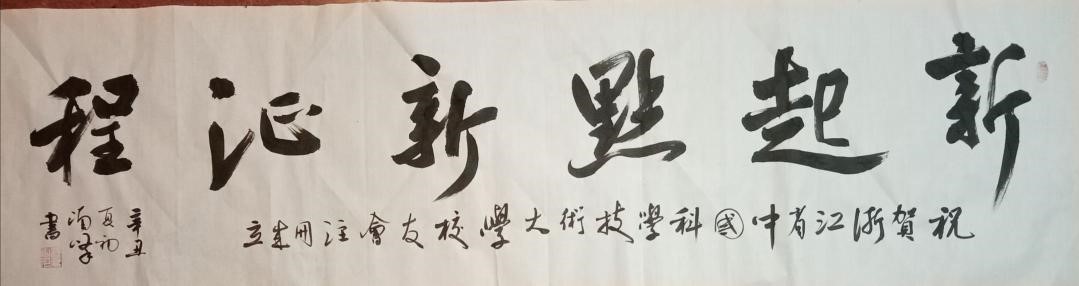 新起點新征程
祝賀浙江省中國科學技術大學校友會注冊成立
辛丑
夏初
書